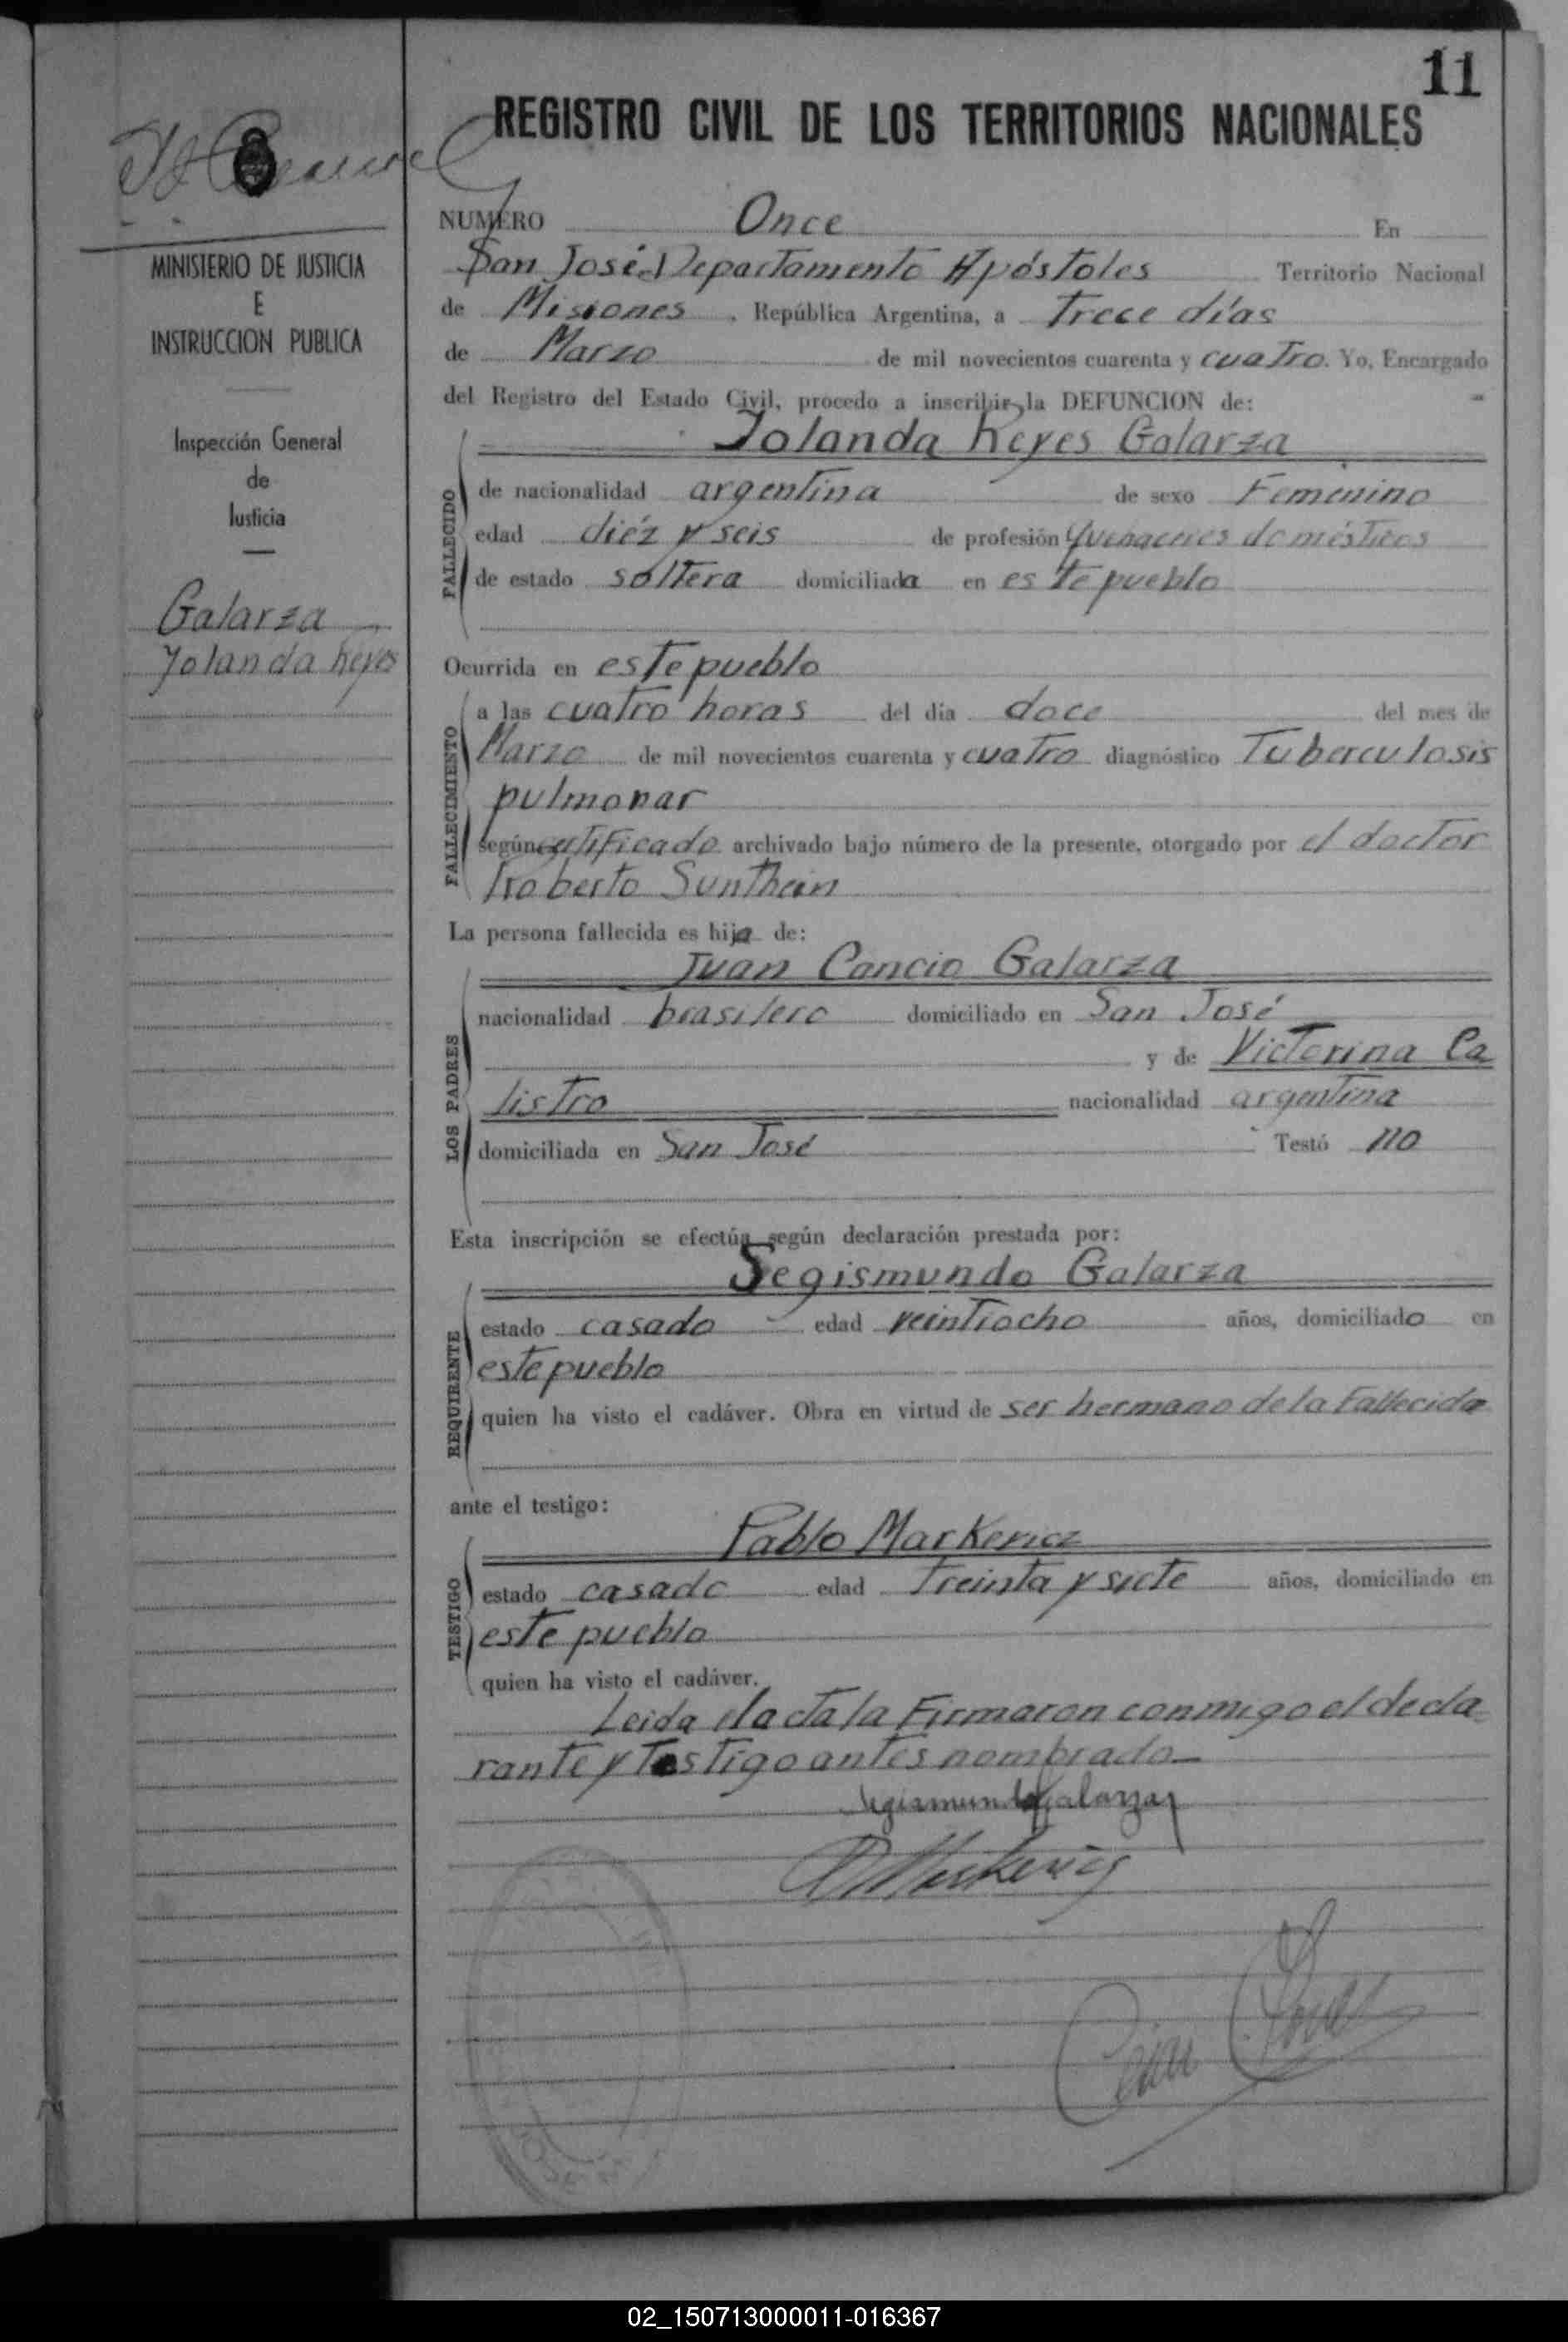 11
REGISTRO CIVIL DE LOS TERRITORIOS NACIONALES
MINISTERIO DE JUSTICIA
E
INSTRUCCION PUBLICA
Inspección General
de
Justicia
Galarza
Yolanda Reyes
NUMERO Once En
San José Departamento Apóstoles Territorio Nacional
de Misiones, República Argentina, a Trece días
de Marzo de mil novecientos cuarenta y cuatro. Yo, Encargado
del Registro del Estado Civil, procedo a inscribir la DEFUNCION de:
Yolanda Reyes Galarza
FALLECIDO
de nacionalidad argentina de sexo Femenino
edad diéz y seis de profesión Quehaceres domésticos
de estado soltera domiciliada en este pueblo
Ocurrida en este pueblo
FALLECIMIENTO
a las cuatro horas del día doce del mes de
Marzo de mil novecientos cuarenta y cuatro diagnóstico Tuberculosis
pulmonar
según certificado archivado bajo número de la presente, otorgado por el doctor
Roberto
La persona fallecida es hija de:
Juan Cancio Galarza
LOS PADRES
nacionalidad brasilero domiciliado en San José
y de Victorina Ca
listro nacionalidad argentina
domiciliada en San José Testó no
Esta inscripción se efectúa según declaración prestada por:
Segismundo Galarza
REQUIRENTE
estado casado edad veintiocho años, domiciliado en
este pueblo
quien ha visto el cadáver. Obra en virtud de ser hermano de la Fallecida
ante el testigo:
Pablo Markevicz
TESTIGO
estado casado edad Treinta y siete años, domiciliado en
este pueblo
quien ha visto el cadáver.
Leida el acta la Firmaron conmigo el decla-
rante y Testigo antes nombrado
Segismundo Galarza
02_150713000011-016367